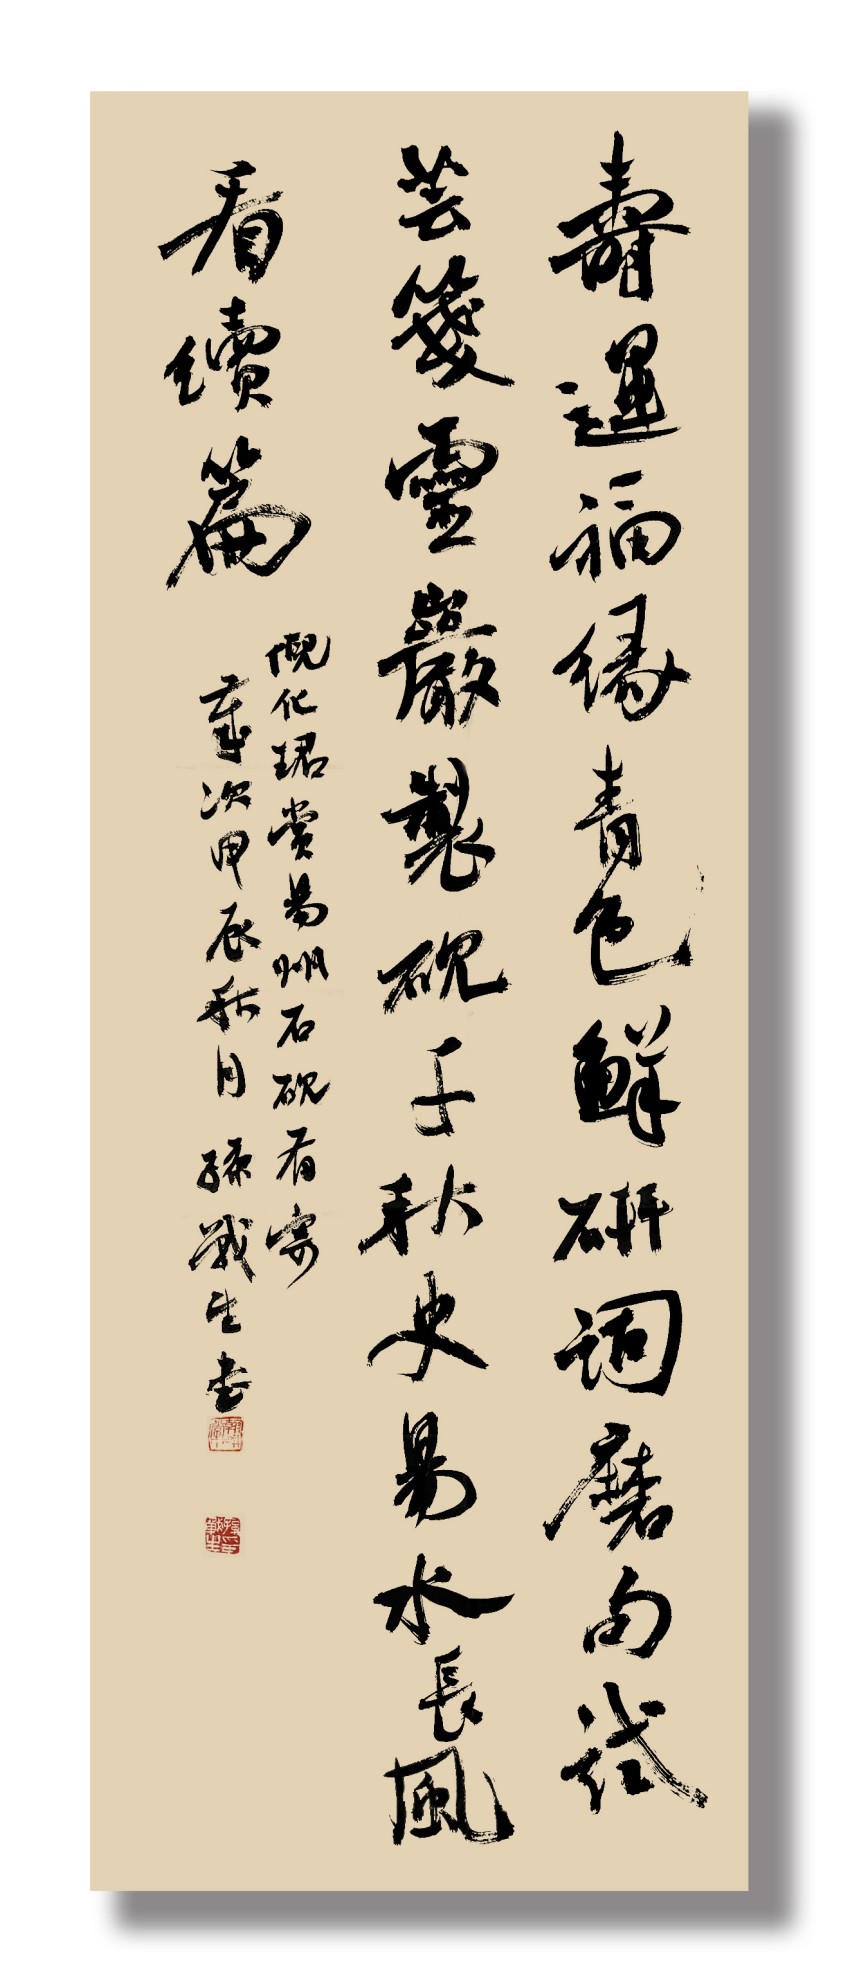 壽運福緣青色鮮研詞磨句試
芸箋靈巖製硯千秋史易水長風
看續篇
倪化珺賞易州石硯有寄
歲次甲辰秋月孫戰生書